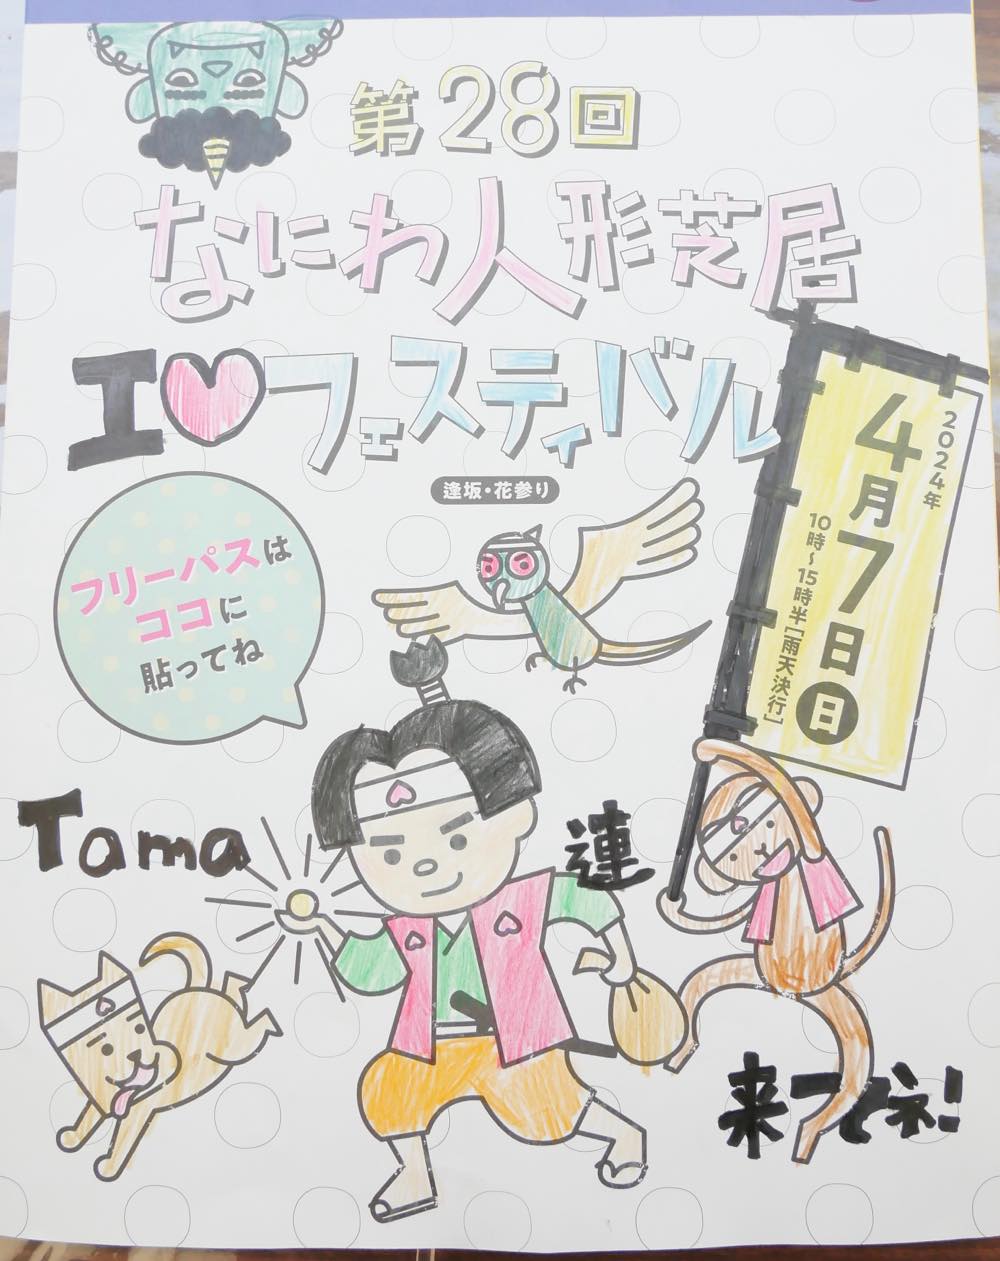 第28回
なにわ人形芝居
I♥フェスティバル
逢坂・花参り
2024年
4月7日日
10時〜15時半[雨天決行]
フリーパスは
ココに
貼ってね
Tama
連
来てネ!